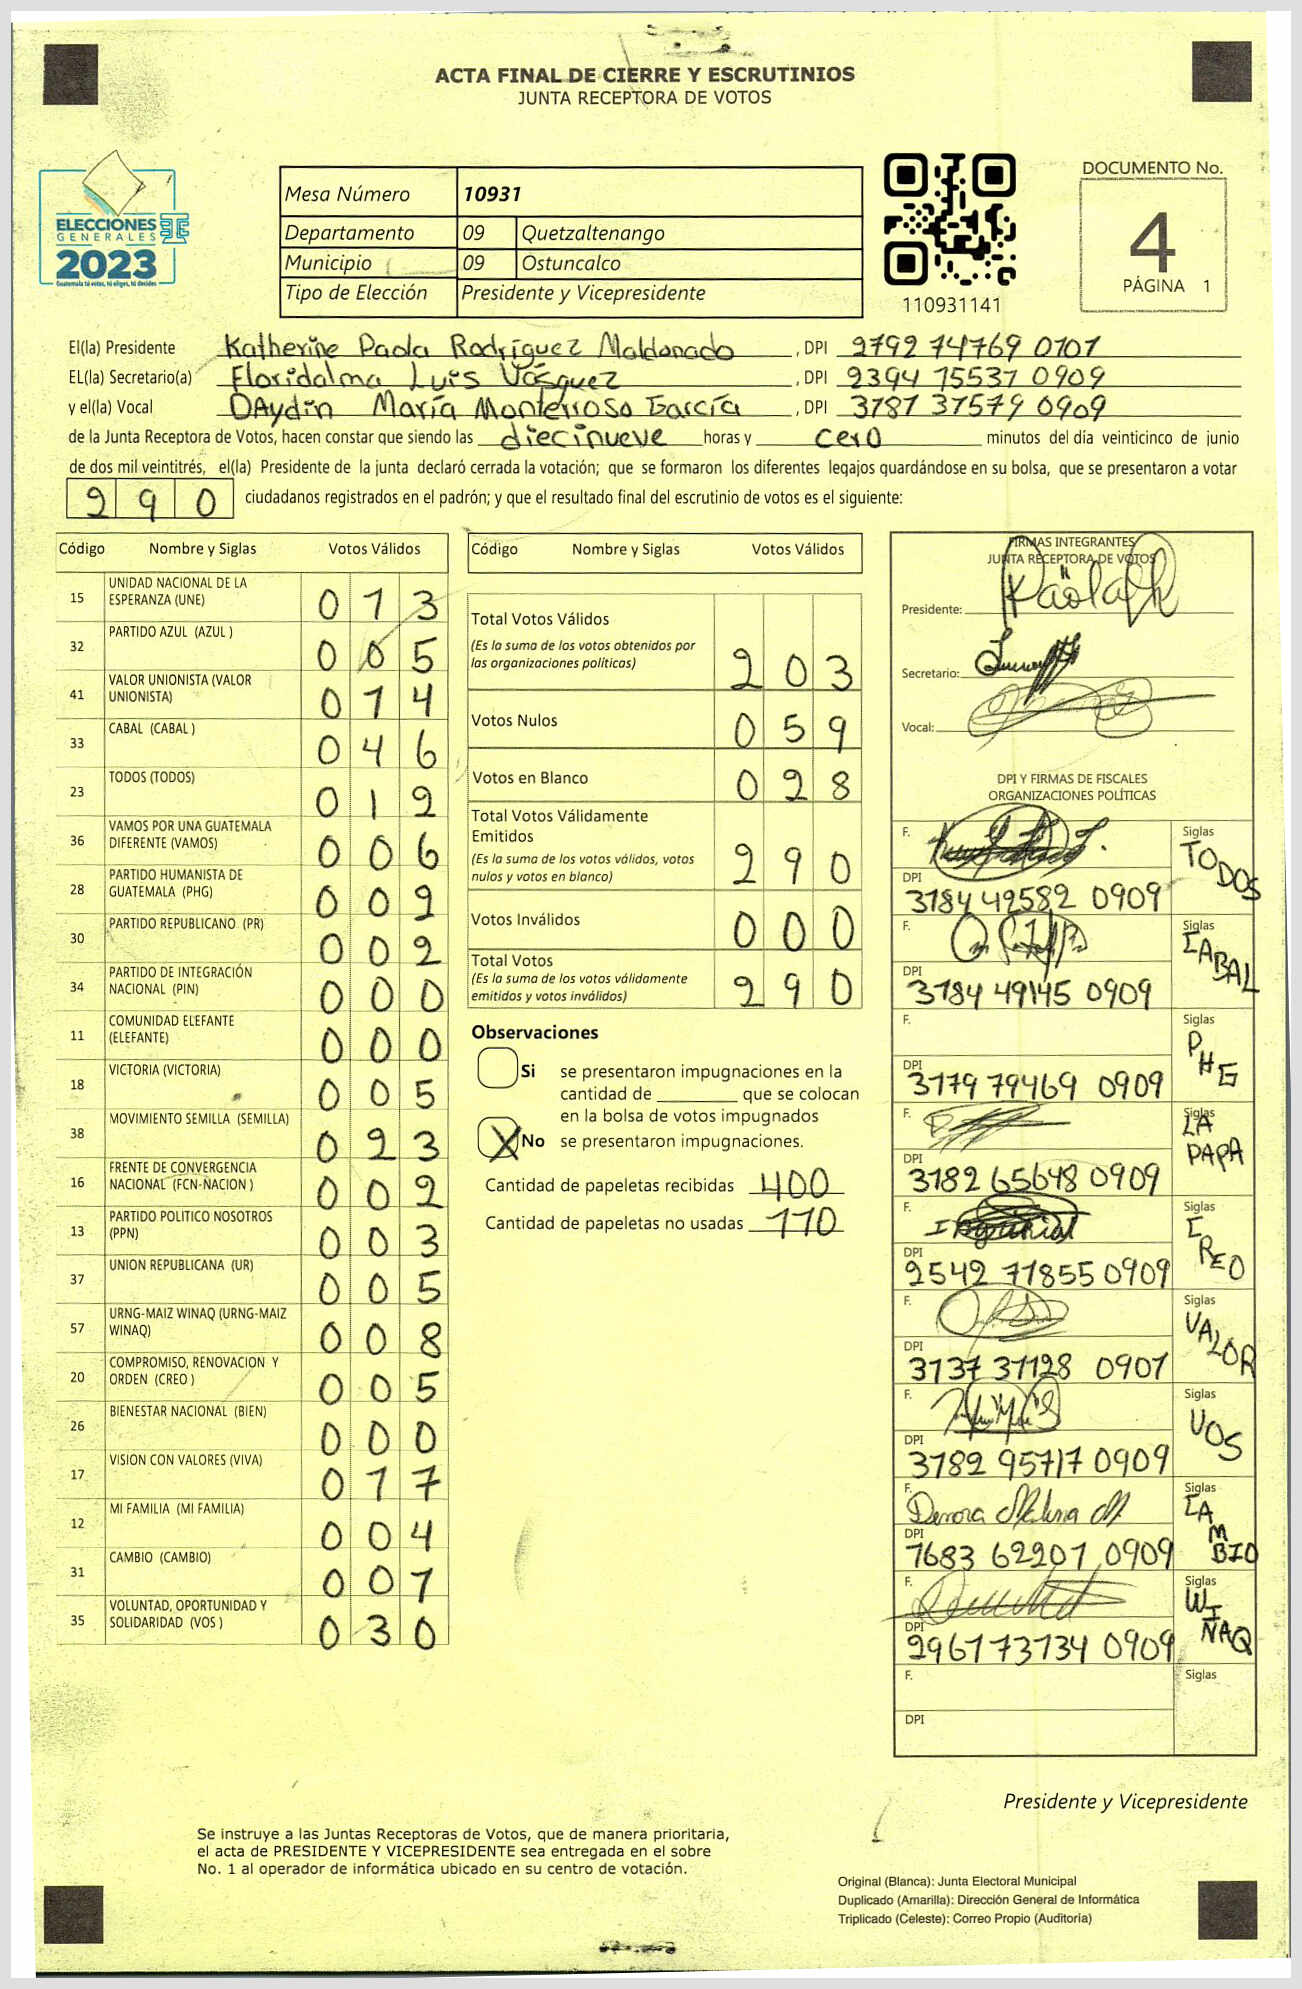 ACTA FINAL DE CIERRE Y ESCRUTINIOS
JUNTA RECEPTORA DE VOTOS
ELECCIONES
GENERALES
2023
Guatemala tú votas, tú eliges, tú decides
Mesa Número 10931
Departamento 09 Quetzaltenango
Municipio 09 Ostuncalco
Tipo de Elección Presidente y Vicepresidente
110931141
DOCUMENTO No.
4
PÁGINA 1
El(la) Presidente Katherine Paola Rodríguez Maldonado , DPI 2792 74769 0101
EL(la) Secretario(a) Floridalma Luis Vásquez , DPI 2394 15537 0909
y el(la) Vocal DAydin María Monterroso García , DPI 3187 37579 0909
de la Junta Receptora de Votos, hacen constar que siendo las diecinueve horas y cero minutos del día veinticinco de junio
de dos mil veintitrés, el(la) Presidente de la junta declaró cerrada la votación; que se formaron los diferentes legajos guardándose en su bolsa, que se presentaron a votar
290 ciudadanos registrados en el padrón; y que el resultado final del escrutinio de votos es el siguiente:
Código Nombre y Siglas Votos Válidos
15 UNIDAD NACIONAL DE LA ESPERANZA (UNE) 013
32 PARTIDO AZUL (AZUL ) 005
41 VALOR UNIONISTA (VALOR UNIONISTA) 014
33 CABAL (CABAL ) 046
23 TODOS (TODOS) 012
36 VAMOS POR UNA GUATEMALA DIFERENTE (VAMOS) 006
28 PARTIDO HUMANISTA DE GUATEMALA (PHG) 002
30 PARTIDO REPUBLICANO (PR) 002
34 PARTIDO DE INTEGRACIÓN NACIONAL (PIN) 000
11 COMUNIDAD ELEFANTE (ELEFANTE) 000
18 VICTORIA (VICTORIA) 005
38 MOVIMIENTO SEMILLA (SEMILLA) 023
16 FRENTE DE CONVERGENCIA NACIONAL (FCN-NACION ) 002
13 PARTIDO POLITICO NOSOTROS (PPN) 003
37 UNION REPUBLICANA (UR) 005
57 URNG-MAIZ WINAQ (URNG-MAIZ WINAQ) 008
20 COMPROMISO, RENOVACION Y ORDEN (CREO ) 005
26 BIENESTAR NACIONAL (BIEN) 000
17 VISION CON VALORES (VIVA) 017
12 MI FAMILIA (MI FAMILIA) 004
31 CAMBIO (CAMBIO) 001
35 VOLUNTAD, OPORTUNIDAD Y SOLIDARIDAD (VOS ) 030
Código Nombre y Siglas Votos Válidos
Total Votos Válidos 203
(Es la suma de los votos obtenidos por
las organizaciones políticas)
Votos Nulos 059
Votos en Blanco 028
Total Votos Válidamente
Emitidos 290
(Es la suma de los votos válidos, votos
nulos y votos en blanco)
Votos Inválidos 000
Total Votos 290
(Es la suma de los votos válidamente
emitidos y votos inválidos)
Observaciones
Si se presentaron impugnaciones en la
cantidad de ________ que se colocan
en la bolsa de votos impugnados
X No se presentaron impugnaciones.
Cantidad de papeletas recibidas 400
Cantidad de papeletas no usadas 110
FIRMAS INTEGRANTES
JUNTA RECEPTORA DE VOTOS
Presidente:
Secretario:
Vocal:
DPI Y FIRMAS DE FISCALES
ORGANIZACIONES POLÍTICAS
F. Siglas TODOS
DPI 3184 42582 0909
F. Siglas CABAL
DPI 3184 49145 0909
F. Siglas PHG
DPI 3179 79469 0909
F. Siglas LA PAPA
DPI 3182 65648 0909
F. Siglas CREO
DPI 2542 71855 0909
F. Siglas VALOR
DPI 3137 31128 0901
F. Siglas VOS
DPI 3182 95717 0909
F. Siglas CAMBIO
DPI 1683 62201 0909
F. Siglas WINAQ
DPI 2961 73134 0909
F. Siglas
DPI
Presidente y Vicepresidente
Se instruye a las Juntas Receptoras de Votos, que de manera prioritaria,
el acta de PRESIDENTE Y VICEPRESIDENTE sea entregada en el sobre
No. 1 al operador de informática ubicado en su centro de votación.
Original (Blanca): Junta Electoral Municipal
Duplicado (Amarilla): Dirección General de Informática
Triplicado (Celeste): Correo Propio (Auditoría)